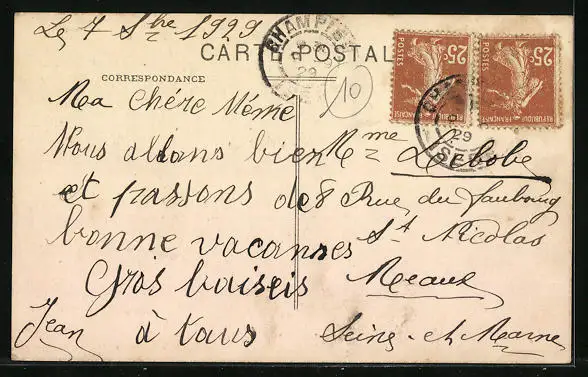 Le 7 Sbre 1929
CARTE POSTALE
CORRESPONDANCE
Ma chére Méme
Nous allons bien
et passons de
bonne vacanses
Gros baiseis
à tous
Jean
10
Mme Lebobe
8 Rue du faubourg
St Nicolas
Meaux
Seine-et-Marne
CHAMP
29
25c
POSTES
REPUBLIQUE FRANÇAISE
25c
POSTES
REPUBLIQUE FRANÇAISE
29